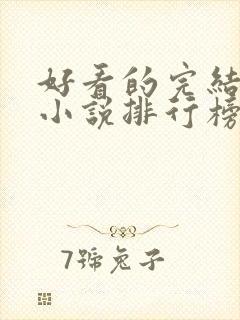 好看的完結
小說排行榜
7號兔子